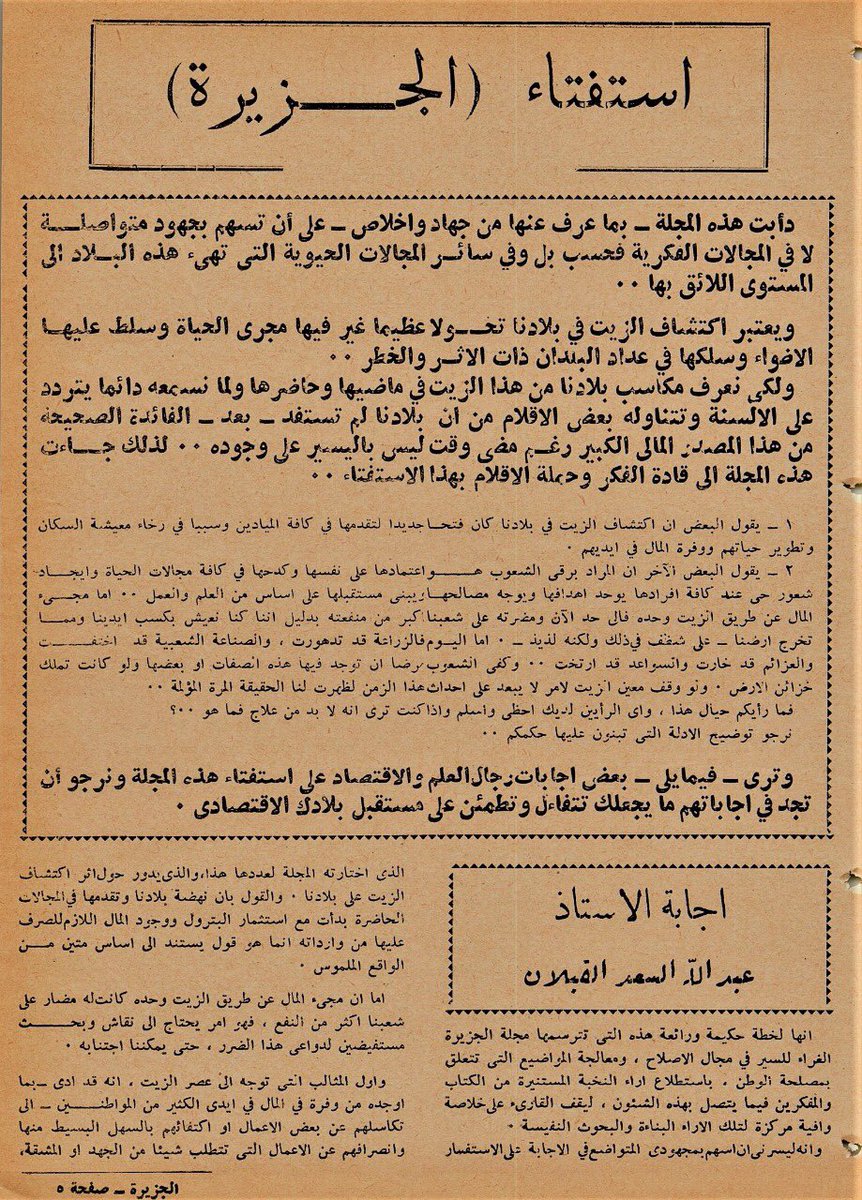 استفتاء (الجـــزيرة)
دأبت هذه المجلة ــ بما عرف عنها من جهاد واخلاص ــ على أن تسهم بجهود متواصلـــة
لا في المجالات الفكرية فحسب بل وفي سائـر المجالات الحيوية التى تهىء هذه البـلاد الى
المستوى اللائق بها ٠٠
ويعتبر اكتشاف الزيت في بلادنا تحـولا عظيما غير فيها مجرى الحياة وسلط عليهـا
الاضواء وسلكها في عداد البلدان ذات الاثـر والخطر ٠٠
ولكى نعرف مكاسب بلادنا من هذا الزيت في ماضيها وحاضرها ولما نسمعه دائما يتردد
على الالسنة وتتناوله بعض الاقلام من ان بلادنا لم تستفد ــ بعد ــ الفائدة الصحيحة
من هذا المصدر المالى الكبير رغـم مضى وقت ليس باليسير على وجوده ٠٠ لذلك جـاءت
هذه المجلة الى قادة الفكر وحملة الاقلام بهذا الاستفتاء ٠٠
١ ــ يقول البعض ان اكتشاف الزيت في بلادنا كان فتحـا جديدا لتقدمها في كافة الميادين وسببا في رخاء معيشة السكان
وتطوير حياتهم ووفرة المال في ايديهم ٠
٢ ــ يقول البعض الآخر ان المراد برقى الشعوب هـــو اعتمادها على نفسها وكدحها في كافة مجالات الحياة وايجـاد
شعور حى عند كافة افرادها يوحد اهدافها ويوجه مصالحها ويبنى مستقبلها على اساس من العلم والعمل ٠٠ اما مجـىء
المال عن طريق الزيت وحده فالى حد الآن ومضرته على شعبنا اكبر من منفعته بدليل اننا كنا نعيش بكسب ايدينا وممـا
تخرج ارضنا ــ على شظف في ذلك ولكنه لذيذ ــ ٠ اما اليوم فالزراعة قد تدهورت ، والصناعة الشعبية قد اختفـــت
والعزائم قد خارت والسواعد قد ارتخت ٠٠ وكفى الشعوب مرضا ان توجد فيها هذه الصفات او بعضها ولو كانت تملك
خزائن الارض ٠ ولو وقف معين الزيت لامر لا يبعد على احداث هذا الزمن لظهرت لنا الحقيقة المرة المؤلمة ٠٠
فما رأيكم حيال هذا ، واى الرأيين لديك احظى وأسلم واذا كنت ترى انه لا بد من علاج فما هو ٠٠؟
نرجو توضيح الادلة التى تبنون عليها حكمكم ٠٠
وترى ــ فيما يلى ــ بعض اجابات رجال العلم والاقتصاد على استفتاء هذه المجلة ونرجو أن
تجد في اجاباتهم ما يجعلك تتفاءل وتطمئن على مستقبل بلادك الاقتصادى ٠
اجابة الاستاذ
عبد الله السعد القبلان
انها لخطة حكيمة ورائعة هذه التى تترسمها مجلة الجزيرة
الغراء للسير في مجال الاصلاح ، ومعالجة المواضيع التى تتعلق
بمصلحة الوطن ٠ باستطلاع اراء النخبة المستنيرة من الكتاب
والمفكرين فيما يتصل بهذه الشئون ، ليقف القارىء على خلاصة
وافية مركزة لتلك الاراء البناءة والبحوث النفيسة ٠
وانه ليسرنى ان اسهم بمجهودى المتواضع في الاجابة على الاستفسار
الذى اختارته المجلة لعددها هذا، والذى يدور حول اثر اكتشاف
الزيت على بلادنا ٠ والقول بان نهضة بلادنا وتقدمها في المجالات
الحاضرة بدأت مع استثمار البترول ووجود المال اللازم للصرف
عليها من وارداته انما هو قول يستند الى اساس متين مـن
الواقع الملموس ٠
اما ان مجىء المال عن طريق الزيت وحده كانت له مضار على
شعبنا اكثر من النفع ، فهو امر يحتاج الى نقاش وبحــث
مستفيضين لدواعى هذا الضرر ، حتى يمكننا اجتنابه ٠
واول المثالب التى توجه الى عصر الزيت ، انه قد ادى ــ بما
اوجده من وفرة في المال في ايدى الكثير من المواطنــين ــ الى
تكاسلهم عن بعض الاعمال او اكتفائهم بالسهل البسيط منها
وانصرافهم عن الاعمال التى تتطلب شيئا من الجهد او المشقة،
الجزيرة ــ صفحة ٥